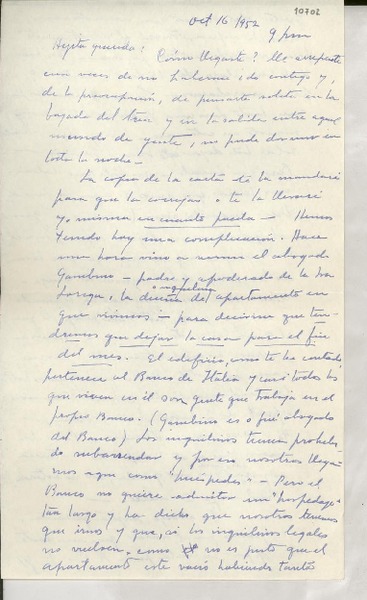 10702
Oct 16 1952
9 pm
Hijita querida: Cómo llegaste? Me arrepentí
cien veces de no haberme ido contigo y,
de la preocupación, de pensarte solita en la
bajada del tren y en la salida entre aquel
mundo de gente, no pude dormir en
toda la noche.
La copia de la carta te la mandaré
para que la corrijas o te la llevaré
yo misma en cuanto pueda. Hemos
tenido hoy una complicación. Hace
una hora vino a vernos el abogado
Gambino - padre y apoderado de la
inquilina
Lorega, la dueña del apartamento en
que vivimos - para decirme que ten-
dremos que dejar la casa para el fin
del mes. El edificio, como te he contado,
pertenece al Banco de Italia y casi todos los
que viven en él son gente que trabaja en el
propio Banco. (Gambino es o fué abogado
del Banco) Los inquilinos tienen prohibi-
do subarrendar y por eso nosotros llega-
mos aquí como "huéspedes" - Pero el
Banco no quiere admitir un "hospedaje"
tan largo y ha dicho que nosotros tenemos
que irnos y que, si los inquilinos legales
no vuelven, como no es justo que el
apartamento esté vacío habiendo tantos